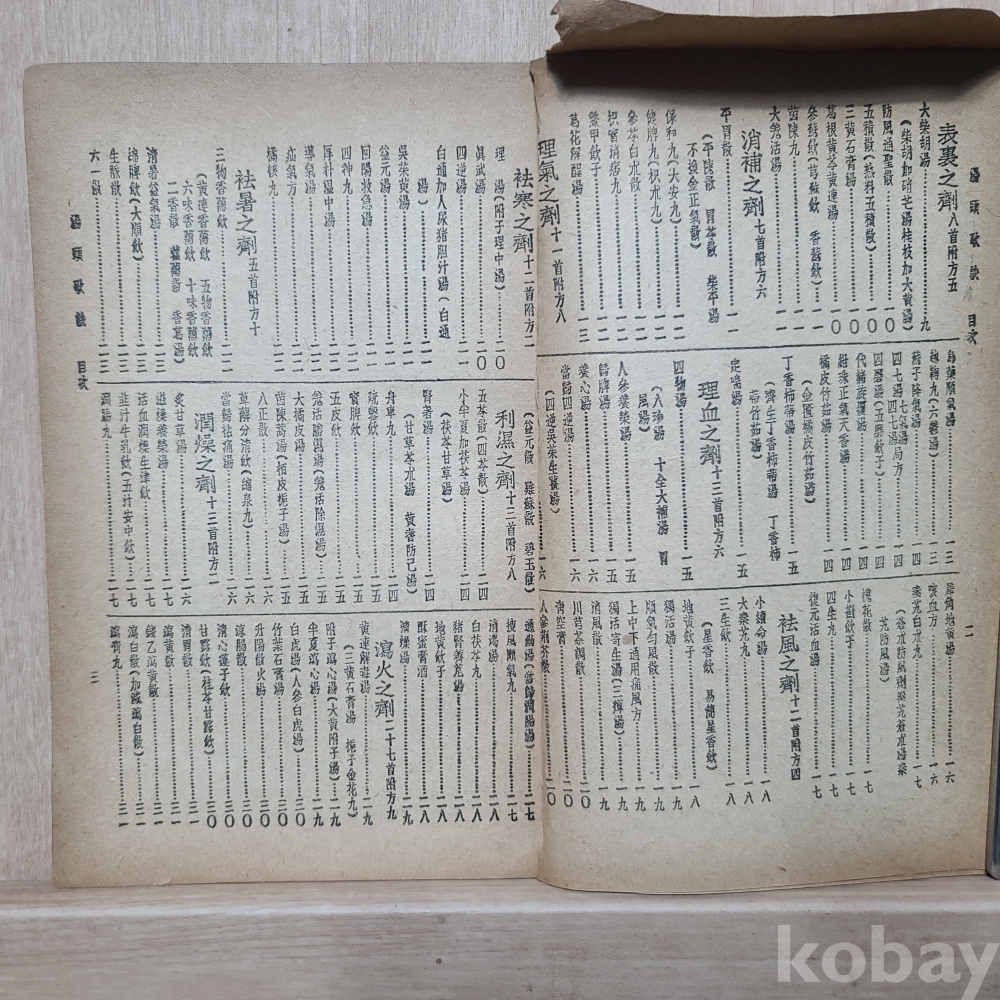 湯頭歌訣 目次
二
表裏之劑八首附方五
大柴胡湯(柴胡加硝芒湯桂枝加大黃湯)……九
防風通聖散……一〇
五積散(熟料五積散)……一〇
三黃石膏湯……一〇
葛根黃芩黃連湯……一〇
參蘇飲(芎蘇飲 香蘇飲)……一一
茵陳丸……一一
大羌活湯……一一
消補之劑七首附方六
平胃散……一一
(平陳散 胃苓散 柴平湯
不換金正氣散)
保和丸(大安丸)……一二
健脾丸(枳朮丸)……一二
參苓白朮散……一二
枳實消痞丸……一二
鱉甲飲子……一二
葛花解酲湯……一三
理氣之劑十一首附方八
烏藥順氣湯……一三
越鞠丸(六鬱湯)……一三
蘇子降氣湯……一四
四七湯 七氣湯
四七湯 局方……一四
四磨湯(五磨飲子)……一四
代赭旋覆湯……一四
紺珠正氣天香湯……一四
橘皮竹茹湯……一四
(金匱橘皮竹茹湯)
丁香柿蒂湯……一五
(濟生丁香柿蒂湯 丁香柿
蒂竹茹湯)
定喘湯……一五
理血之劑十三首附方六
四物湯……一五
(八珍湯 十全大補湯 胃
風湯)
人參養榮湯……一五
歸脾湯……一五
養心湯……一六
當歸四逆湯
(四逆吳茱生薑湯)……一六
犀角地黃湯……一六
咳血方……一六
秦艽白朮丸……一七
(蒼朮防風劑秦艽蒼朮湯秦
艽防風湯)
槐花散……一七
小薊飲子……一七
四生丸……一七
復元活血湯……一七
祛風之劑十二首附方四
小續命湯……一八
大秦艽丸……一八
三生飲……一八
(星香飲 易簡星香飲)
地黃飲子……一八
獨活湯……一八
順氣勻風散……一八
上中下通用痛風方……一九
獨活寄生湯(三痺湯)……一九
消風散……一九
川芎茶調散……二〇
青空膏……二〇
人參荊芥散……二〇
祛寒之劑十二首附方二
理 湯(附子理中湯)……二〇
眞武湯……二〇
四逆湯……二一
白通加人尿猪胆汁湯(白通
湯)……二一
吳茱萸湯……二一
益元湯……二一
回陽救急湯……二一
四神丸……二一
厚朴溫中湯……二一
導氣湯……二二
疝氣方……二二
橘核丸……二二
祛暑之劑五首附方十
三物香薷飲……二二
(黃連香薷飲 五物香薷飲
六味香薷飲 十味香薷飲
二香散 藿薷散 香葛湯)
清暑益氣湯……二三
縮脾飲(大順飲)……二三
生脈散……二三
六一散……二三
(益元散 雞蘇散 碧玉散)
利濕之劑十三首附方八
五苓散(四苓散)……二四
小半夏加茯苓湯……二四
(茯苓甘草湯)
腎著湯……二四
(甘草苓朮湯 黃耆防己湯)
舟車丸……二四
疏鑿飲……二五
實脾飲……二五
五皮飲……二五
羌活勝濕湯(羌活除濕湯)……二五
大橘皮湯……二五
茵陳蒿湯(栢皮梔子湯)……二五
八正散……二六
萆薢分清飲(縮泉丸)……二六
當歸拈痛湯……二六
潤燥之劑十三首附方二
炙甘草湯……二六
滋燥養榮湯……二七
活血潤燥生津飲……二七
韭汁牛乳飲(五汁安中飲)……二七
潤腸丸……二七
通幽湯(當歸潤腸湯)……二七
搜風順氣丸……二七
消渴湯……二八
白茯苓丸……二八
猪腎薺苨湯……二八
地黃飲子……二八
酥蜜膏酒……二八
清燥湯……二九
瀉火之劑二十七首附方九
黃連解毒湯……二九
(三黃石膏湯 梔子金花丸)
附子瀉心湯(大黃附子湯)……二九
半夏瀉心湯……二九
白虎湯(人參白虎湯)……三〇
竹葉石膏湯……三〇
升陽散火湯……三〇
涼膈散……三〇
清心蓮子飲……三〇
甘露飲(桂苓甘露飲)……三〇
清胃散……三一
瀉黃散……三一
錢乙瀉黃散……三一
瀉白散(加減瀉白散)……三一
瀉青丸……三一
湯頭歌訣 目次
三